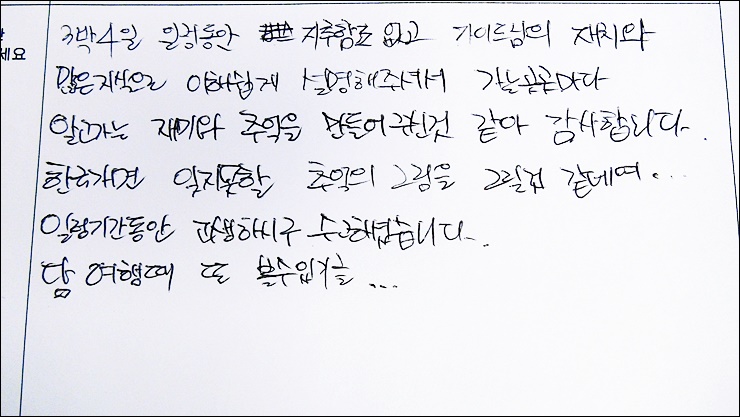 세요
3박4일 일정동안 지루함도 없고 가이드님의 재치와
많은지식으로 이해쉽게 설명해주셔서 가는곳곳마다
알아가는 재미와 추억을 만들어주신것 같아 감사합니다.
한국가면 잊지못할 추억의 그림을 그릴것 같네여...
일정기간동안 고생하시구 수고하셨습니다.
담 여행때 또 볼수있기를 ...